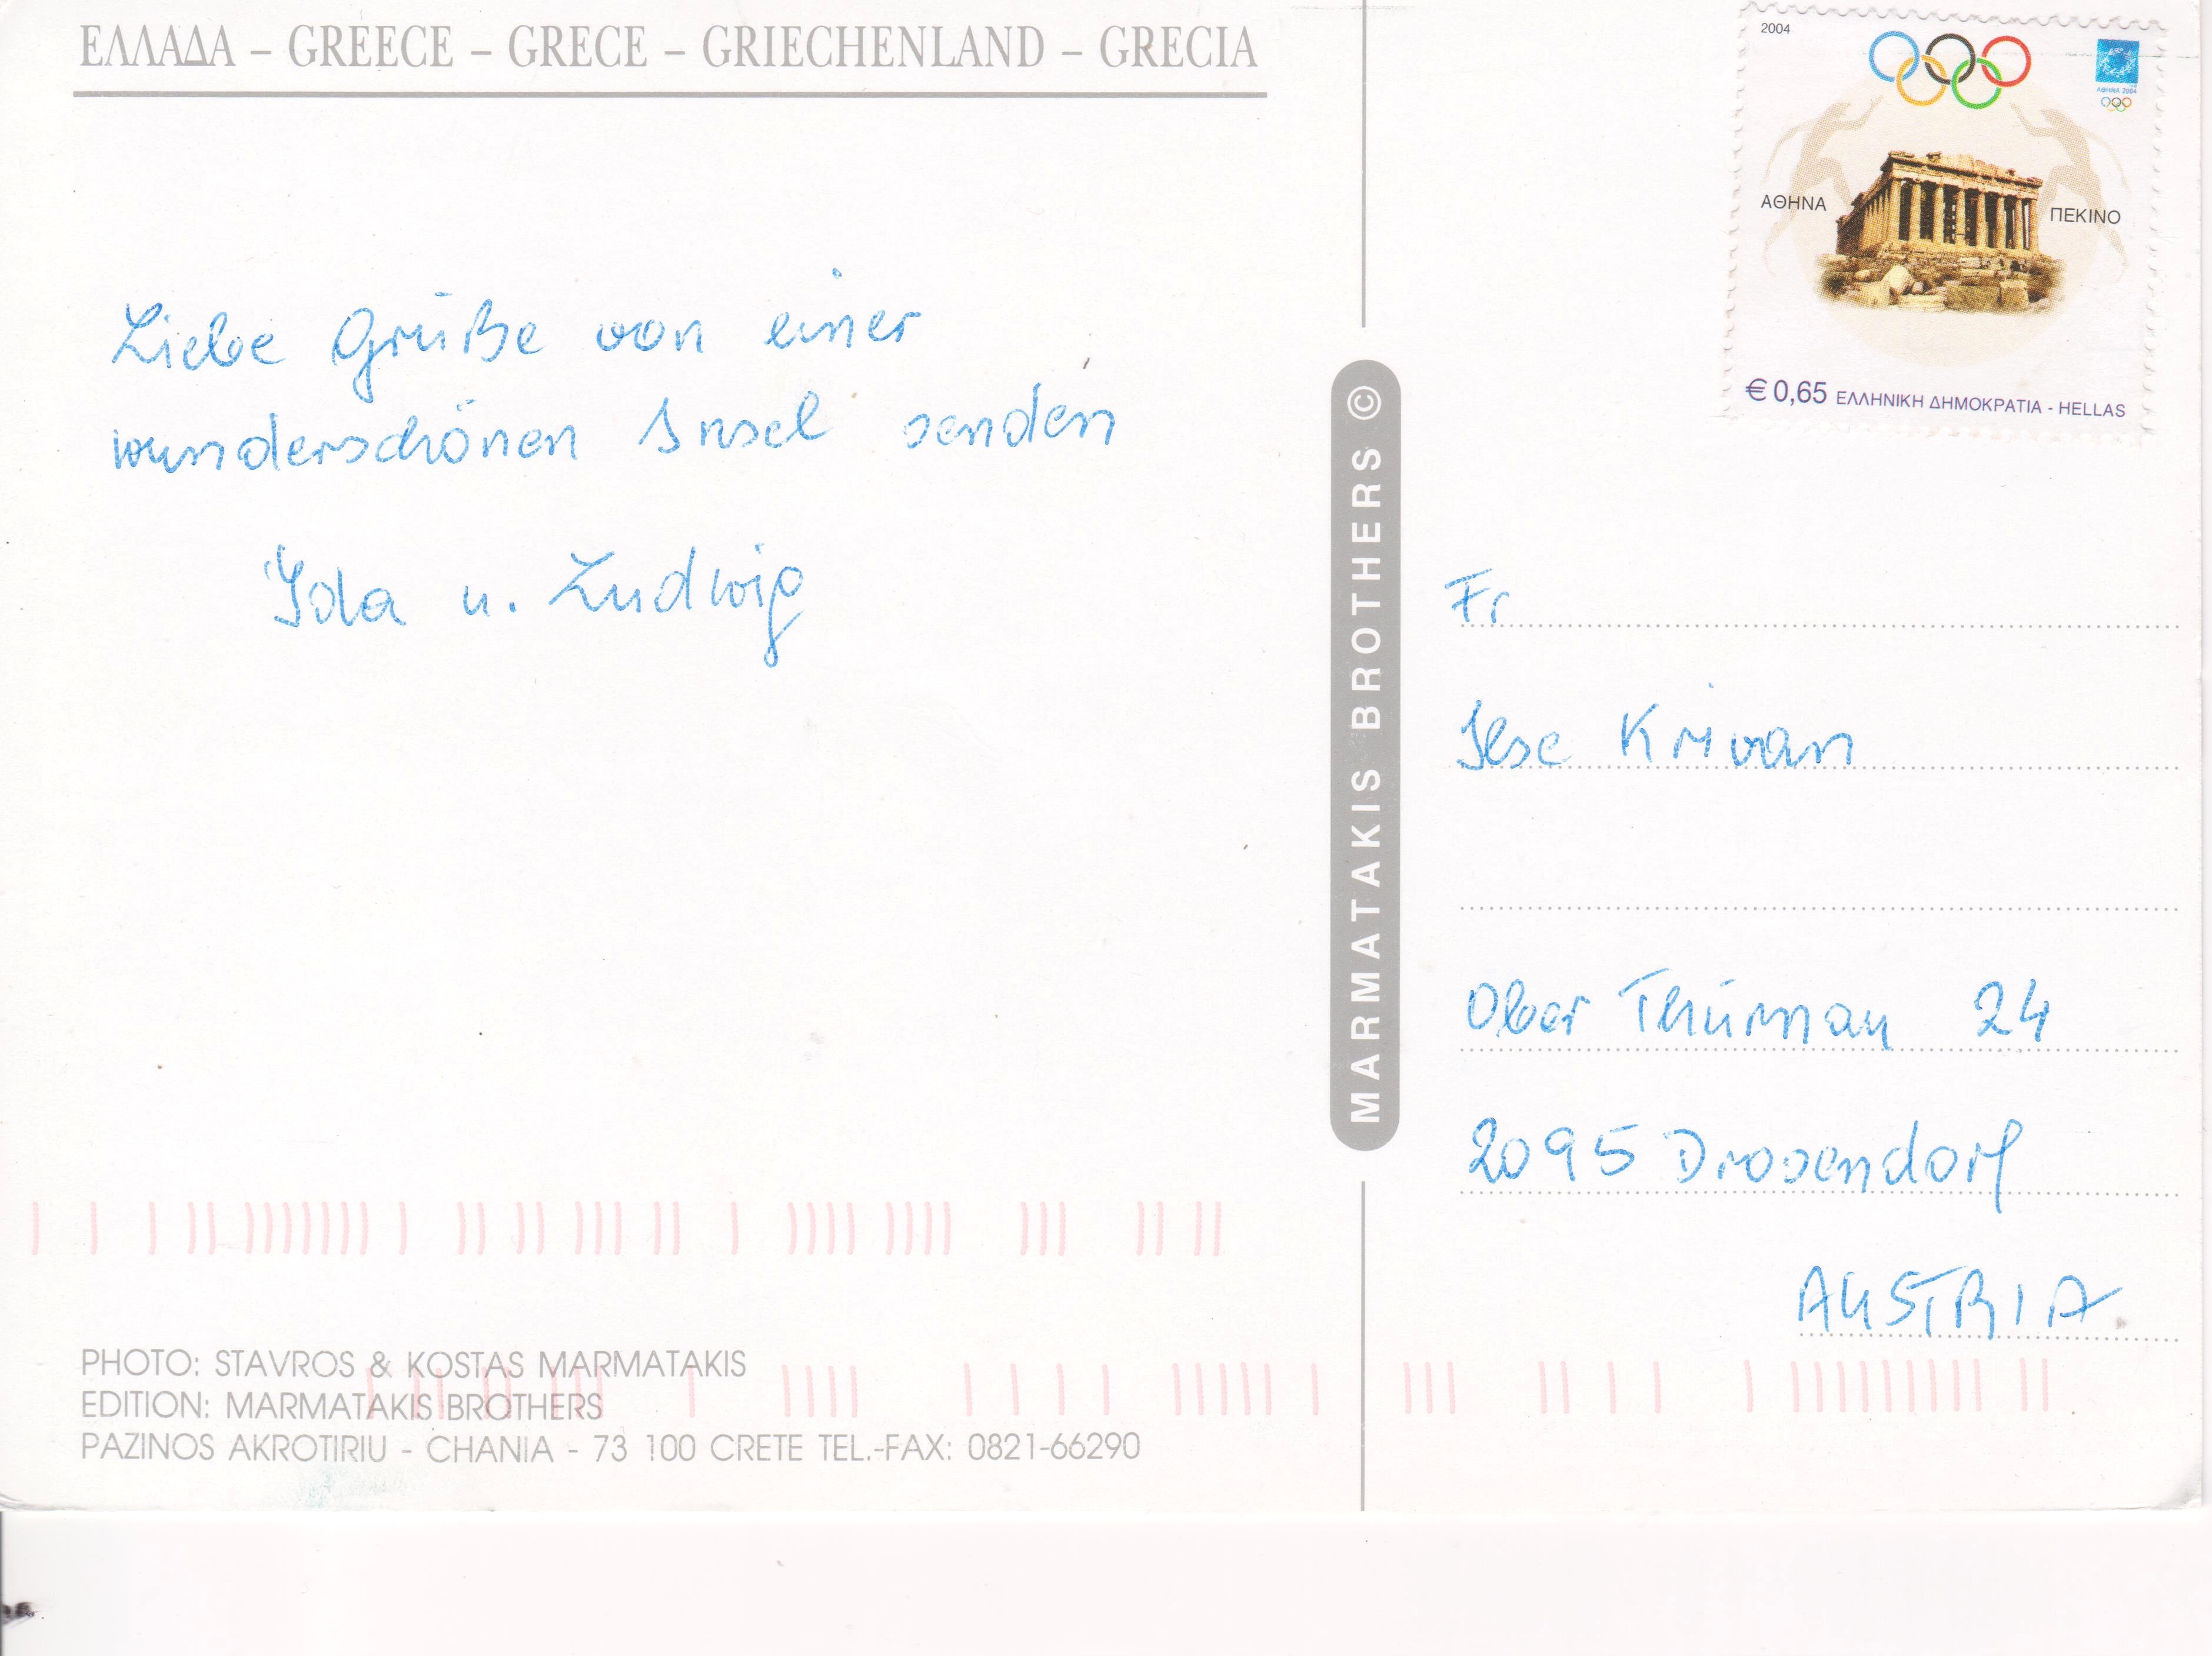 ΕΛΛΑΔΑ – GREECE – GRECE – GRIECHENLAND – GRECIA
Liebe Grüße von einer
wunderschönen Insel senden
Ida u. Ludwig
PHOTO: STAVROS & KOSTAS MARMATAKIS
EDITION: MARMATAKIS BROTHERS
PAZINOS AKROTIRIU - CHANIA - 73 100 CRETE TEL.-FAX: 0821-66290
MARMATAKIS BROTHERS ©
2004
ΑΘΗΝΑ 2004
ΑΘΗΝΑ
ΠΕΚΙΝΟ
€ 0,65 ΕΛΛΗΝΙΚΗ ΔΗΜΟΚΡΑΤΙΑ - HELLAS
Fr
Ilse Krivan
Ober Thürnau 24
2095 Drosendorf
AUSTRIA